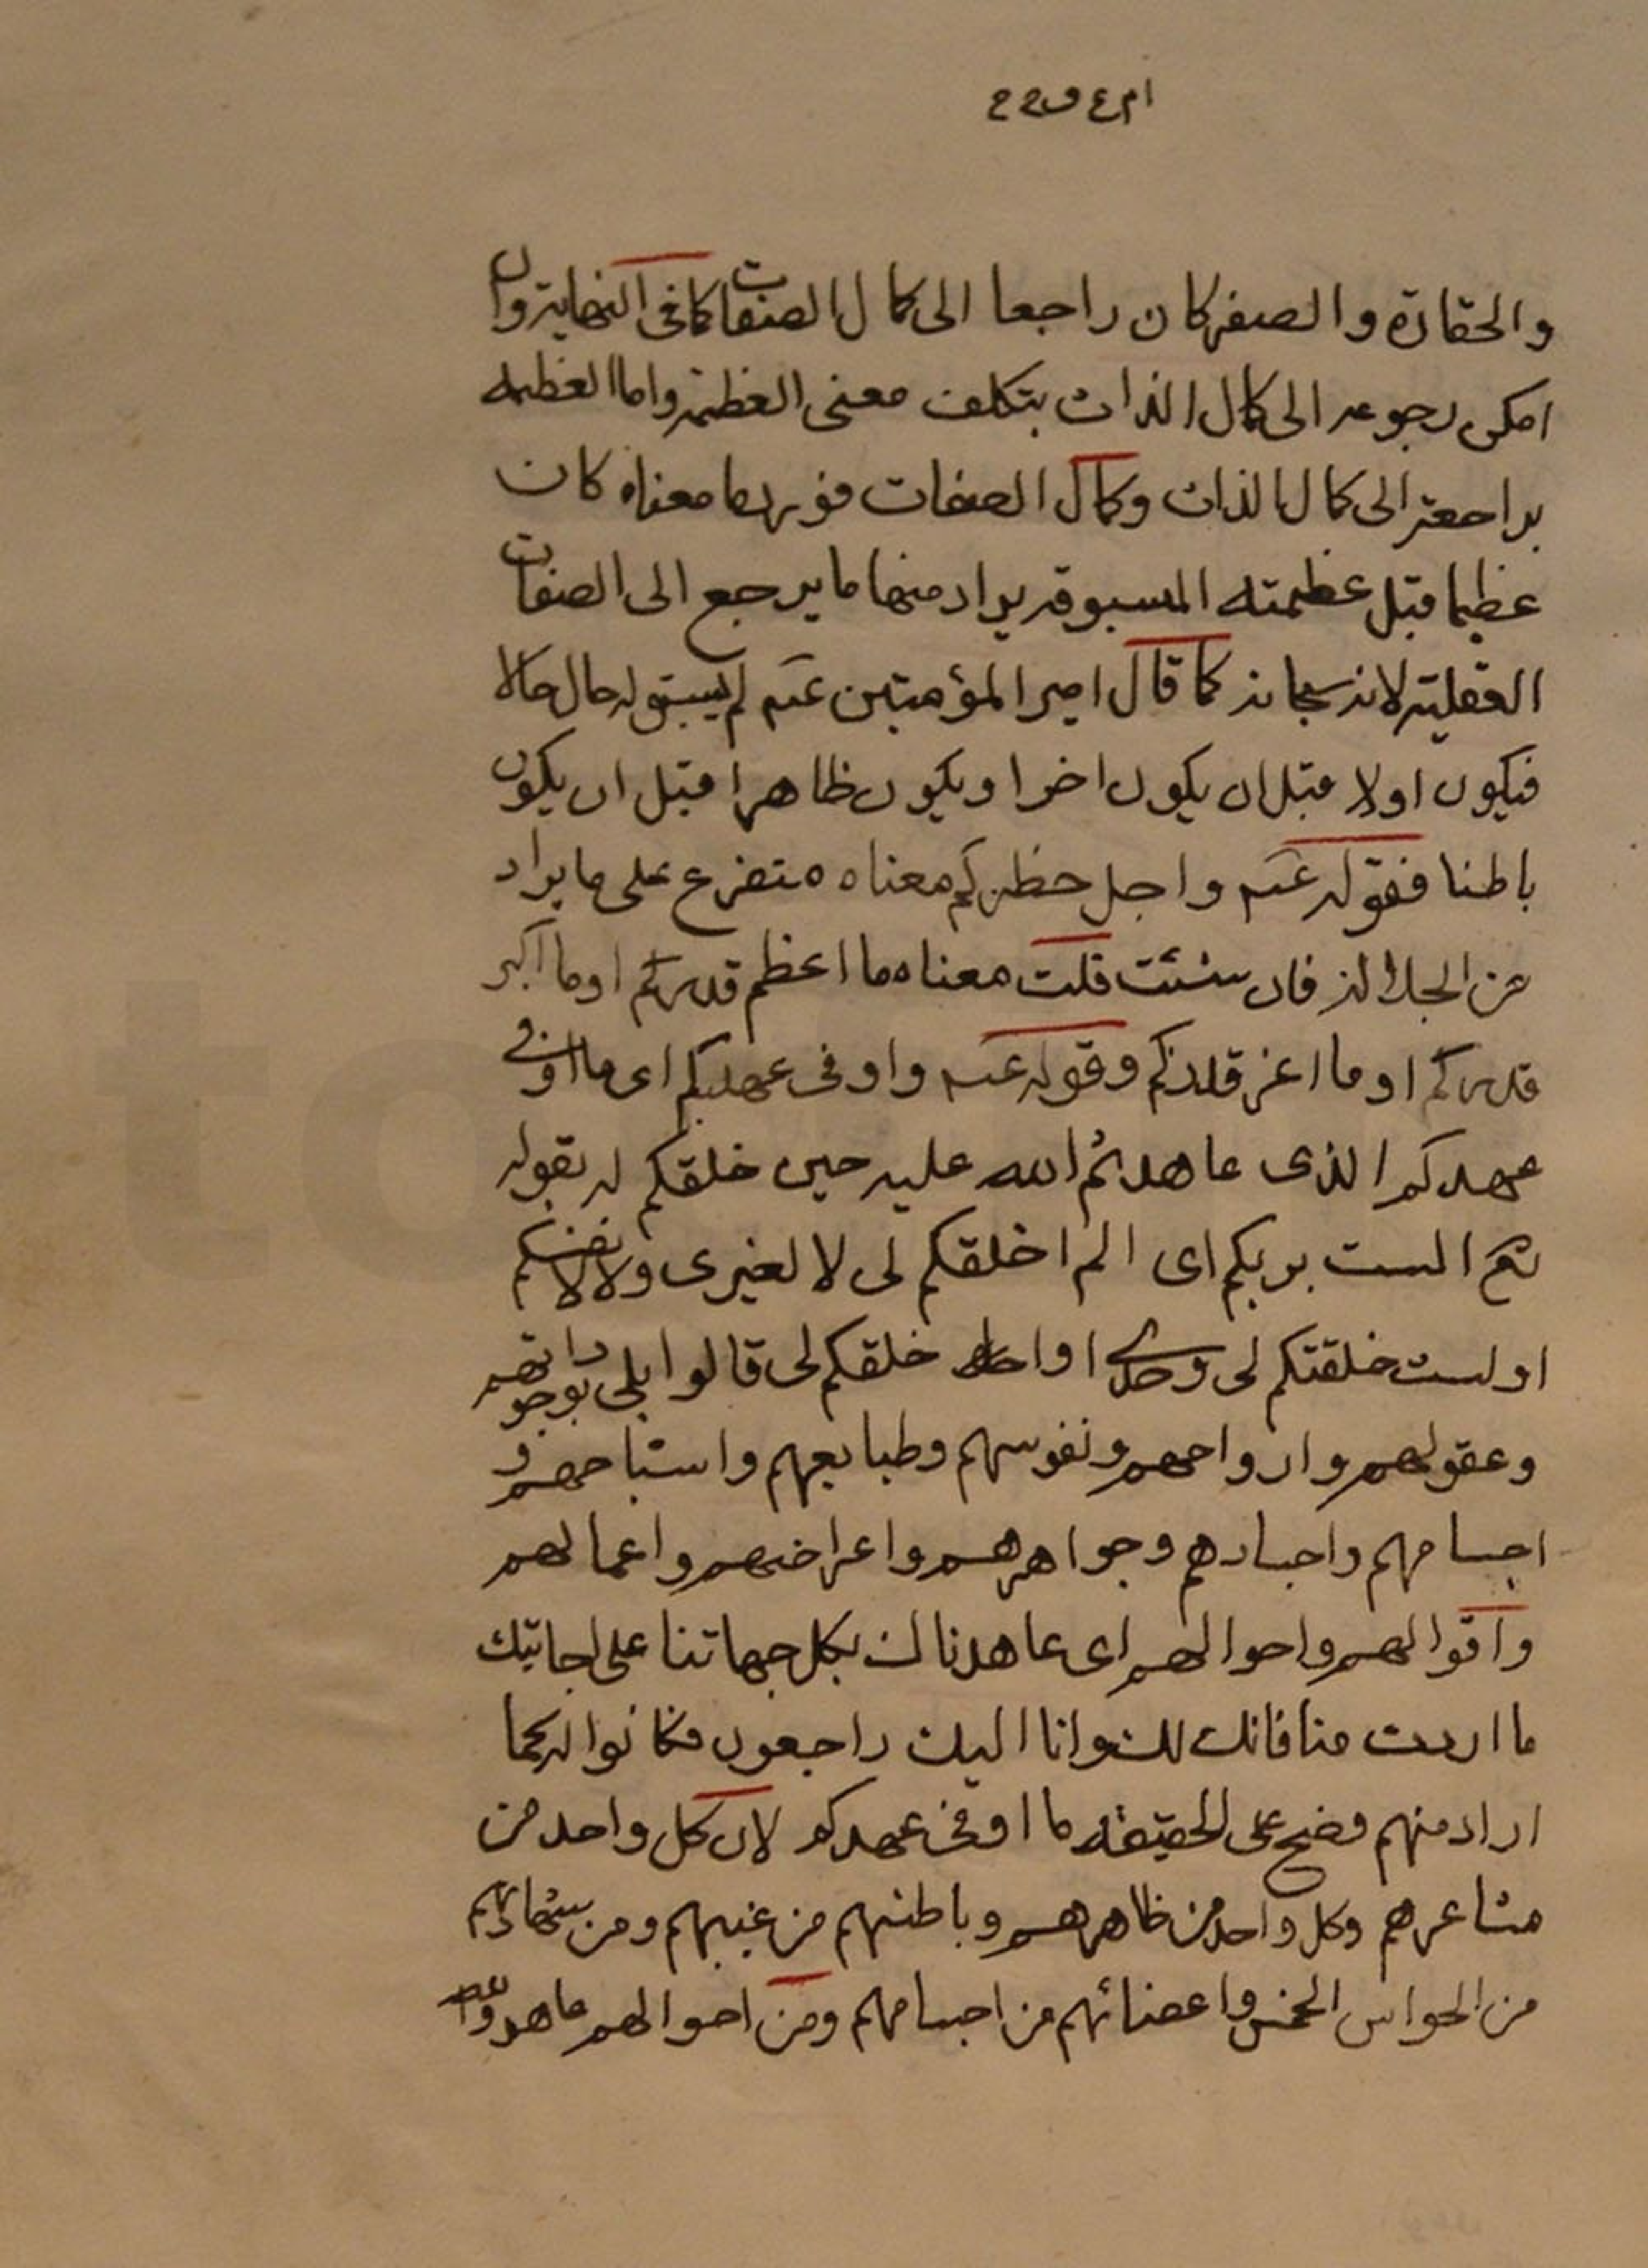 والحقارة والصغر كان راجعا الى كمال الصفات كما فى النهاية وان
امكن رجوعه الى كمال الذات بتكلف معنى العظمة واما العظمه
براجعة الى كمال الذات وكمال الصفات معناه كان
عظيما قبل عظمته المسبوقه يراد منها ما يرجع الى الصفات
الفعلية لانه سبحانه كما قال امير المؤمنين عم لم يسبق له حال حالا
فيكون اولا قبل ان يكون اخرا ويكون ظاهرا قبل ان يكون
باطنا فقوله عم واجل خطركم معناه متفرع على ما يراد
من الجلالة فان شئت قلت معناه ما اعظم قدركم او ما اكبر
قدركم او ما اعز قدركم وقوله عم واوفى عهدكم اى ما اوفى
عهدكم الذى عاهدتم الله عليه حين خلقكم له بقوله
تع الست بربكم اى الم اخلقكم لى لا لغيرى ولا لانفسكم
اولست خلقتكم لى وحدى خلقكم لى قالوا بلى بوجوداتهم
وعقولهم وارواحهم ونفوسهم وطبايعهم واشباحهم و
اجسامهم واجسادهم وجواهرهم واعراضهم واعمالهم
واقوالهم واحوالهم اى عاهدناك بكل جهاتنا على اجابتك
ما اردت منا فانك وانا اليك راجعون فكانوا له كما
اراد منهم فصح على الحقيقه ما اوفى عهدكم لان كل واحد من
مشاعرهم وكل واحد من ظاهرهم وباطنهم من غيبهم ومن شهادتهم
من الحواس الخمس واعضائهم من اجسامهم ومن احوالهم عاهدوا